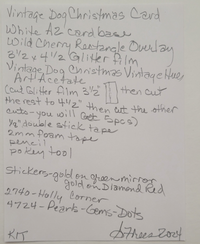 Vintage Dog Christmas Card
White A2 card base
Wild Cherry Rectangle Overlay
3½ x 4½ Glitter film
Vintage Dog Christmas Vintage Hues
Art Acetate
(cut Glitter film 3½" then cut
the rest to 4½" then cut the other
cuts-you will get 5pcs)
⅛" double stick tape
2mm foam tape
pencil
pokey tool
stickers-gold on green mirror
gold on Diamond Red
2740-Holly Corner
4724-Pearls-Gems-Dots
KIT 2024